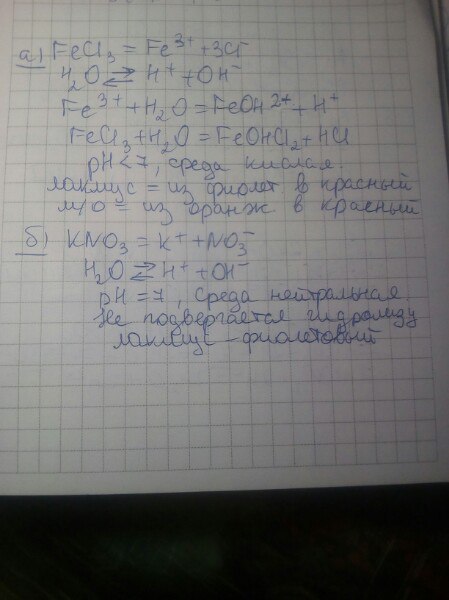 а) FeCl₃ = Fe³⁺ + 3Cl⁻
H₂O ⇄ H⁺ + OH⁻
Fe³⁺ + H₂O = FeOH²⁺ + H⁺
FeCl₃ + H₂O = FeOHCl₂ + HCl
pH < 7, среда кислая.
лакмус = из фиолет в красный
м/о = из оранж в красный
б) KNO₃ = K⁺ + NO₃⁻
H₂O ⇄ H⁺ + OH⁻
pH = 7, Среда нейтральная.
Не подвергается гидролизу
лакмус - фиолетовый